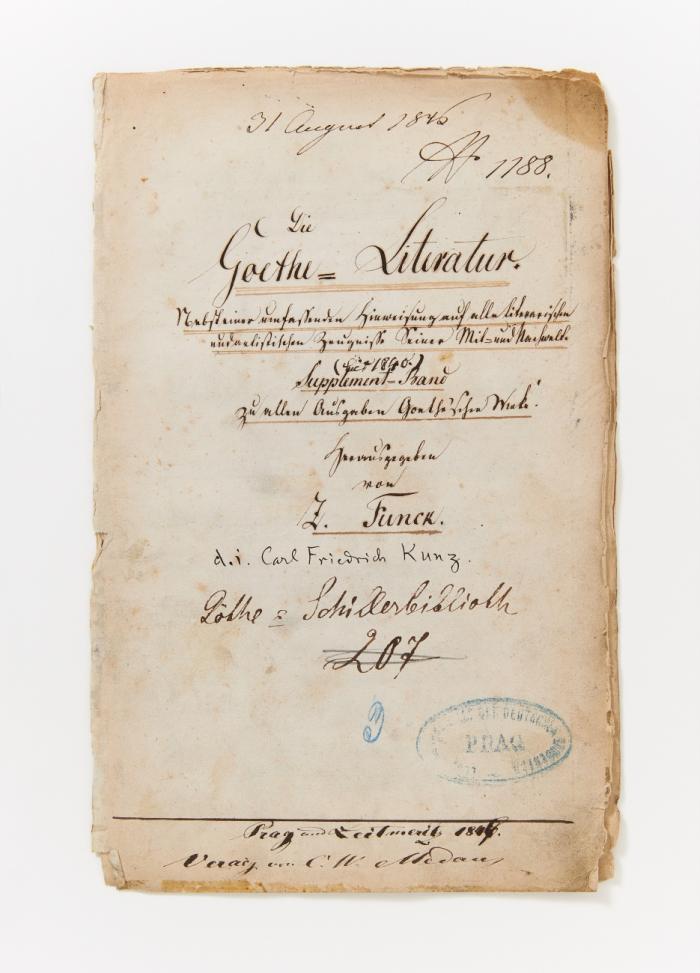 31 August 1846
No 1188.
Die
Goethe= Literatur.
Nebst einer umfassenden Hinweisung auf alle literarischen
und artistischen Zeugnisse Seiner Mit= und Nachwelt.
(bis 1840.)
Supplement=Band
zu allen Ausgaben Goethe'scher Werke.
Herausgegeben
von
Z. Funck.
d.i. Carl Friedrich Kunz.
Göthe = Schillerbiblioth
207
3
DER DEUTSCHEN
PRAG
Prag und Leitmeritz 1846.
Verlag von C. W. Medau,